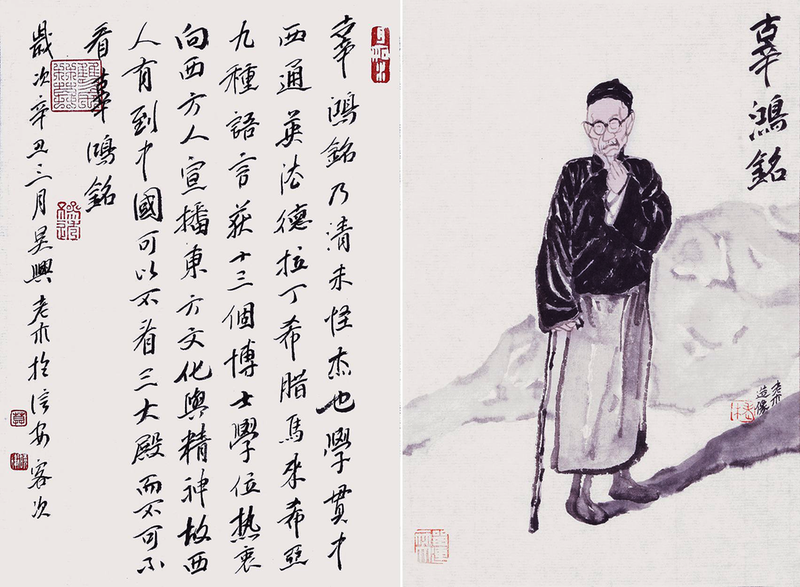 辜鴻銘乃清末怪杰也學貫中
西通英法德拉丁希腊馬來希亞
九種語言获十三個博士學位热衷
向西方人宣播東方文化與精神故西
人有到中國可以不看三大殿而不可不
看辜鴻銘
歲次辛丑三月吴興老朩於信安客次
辜鴻銘
老朩
造像